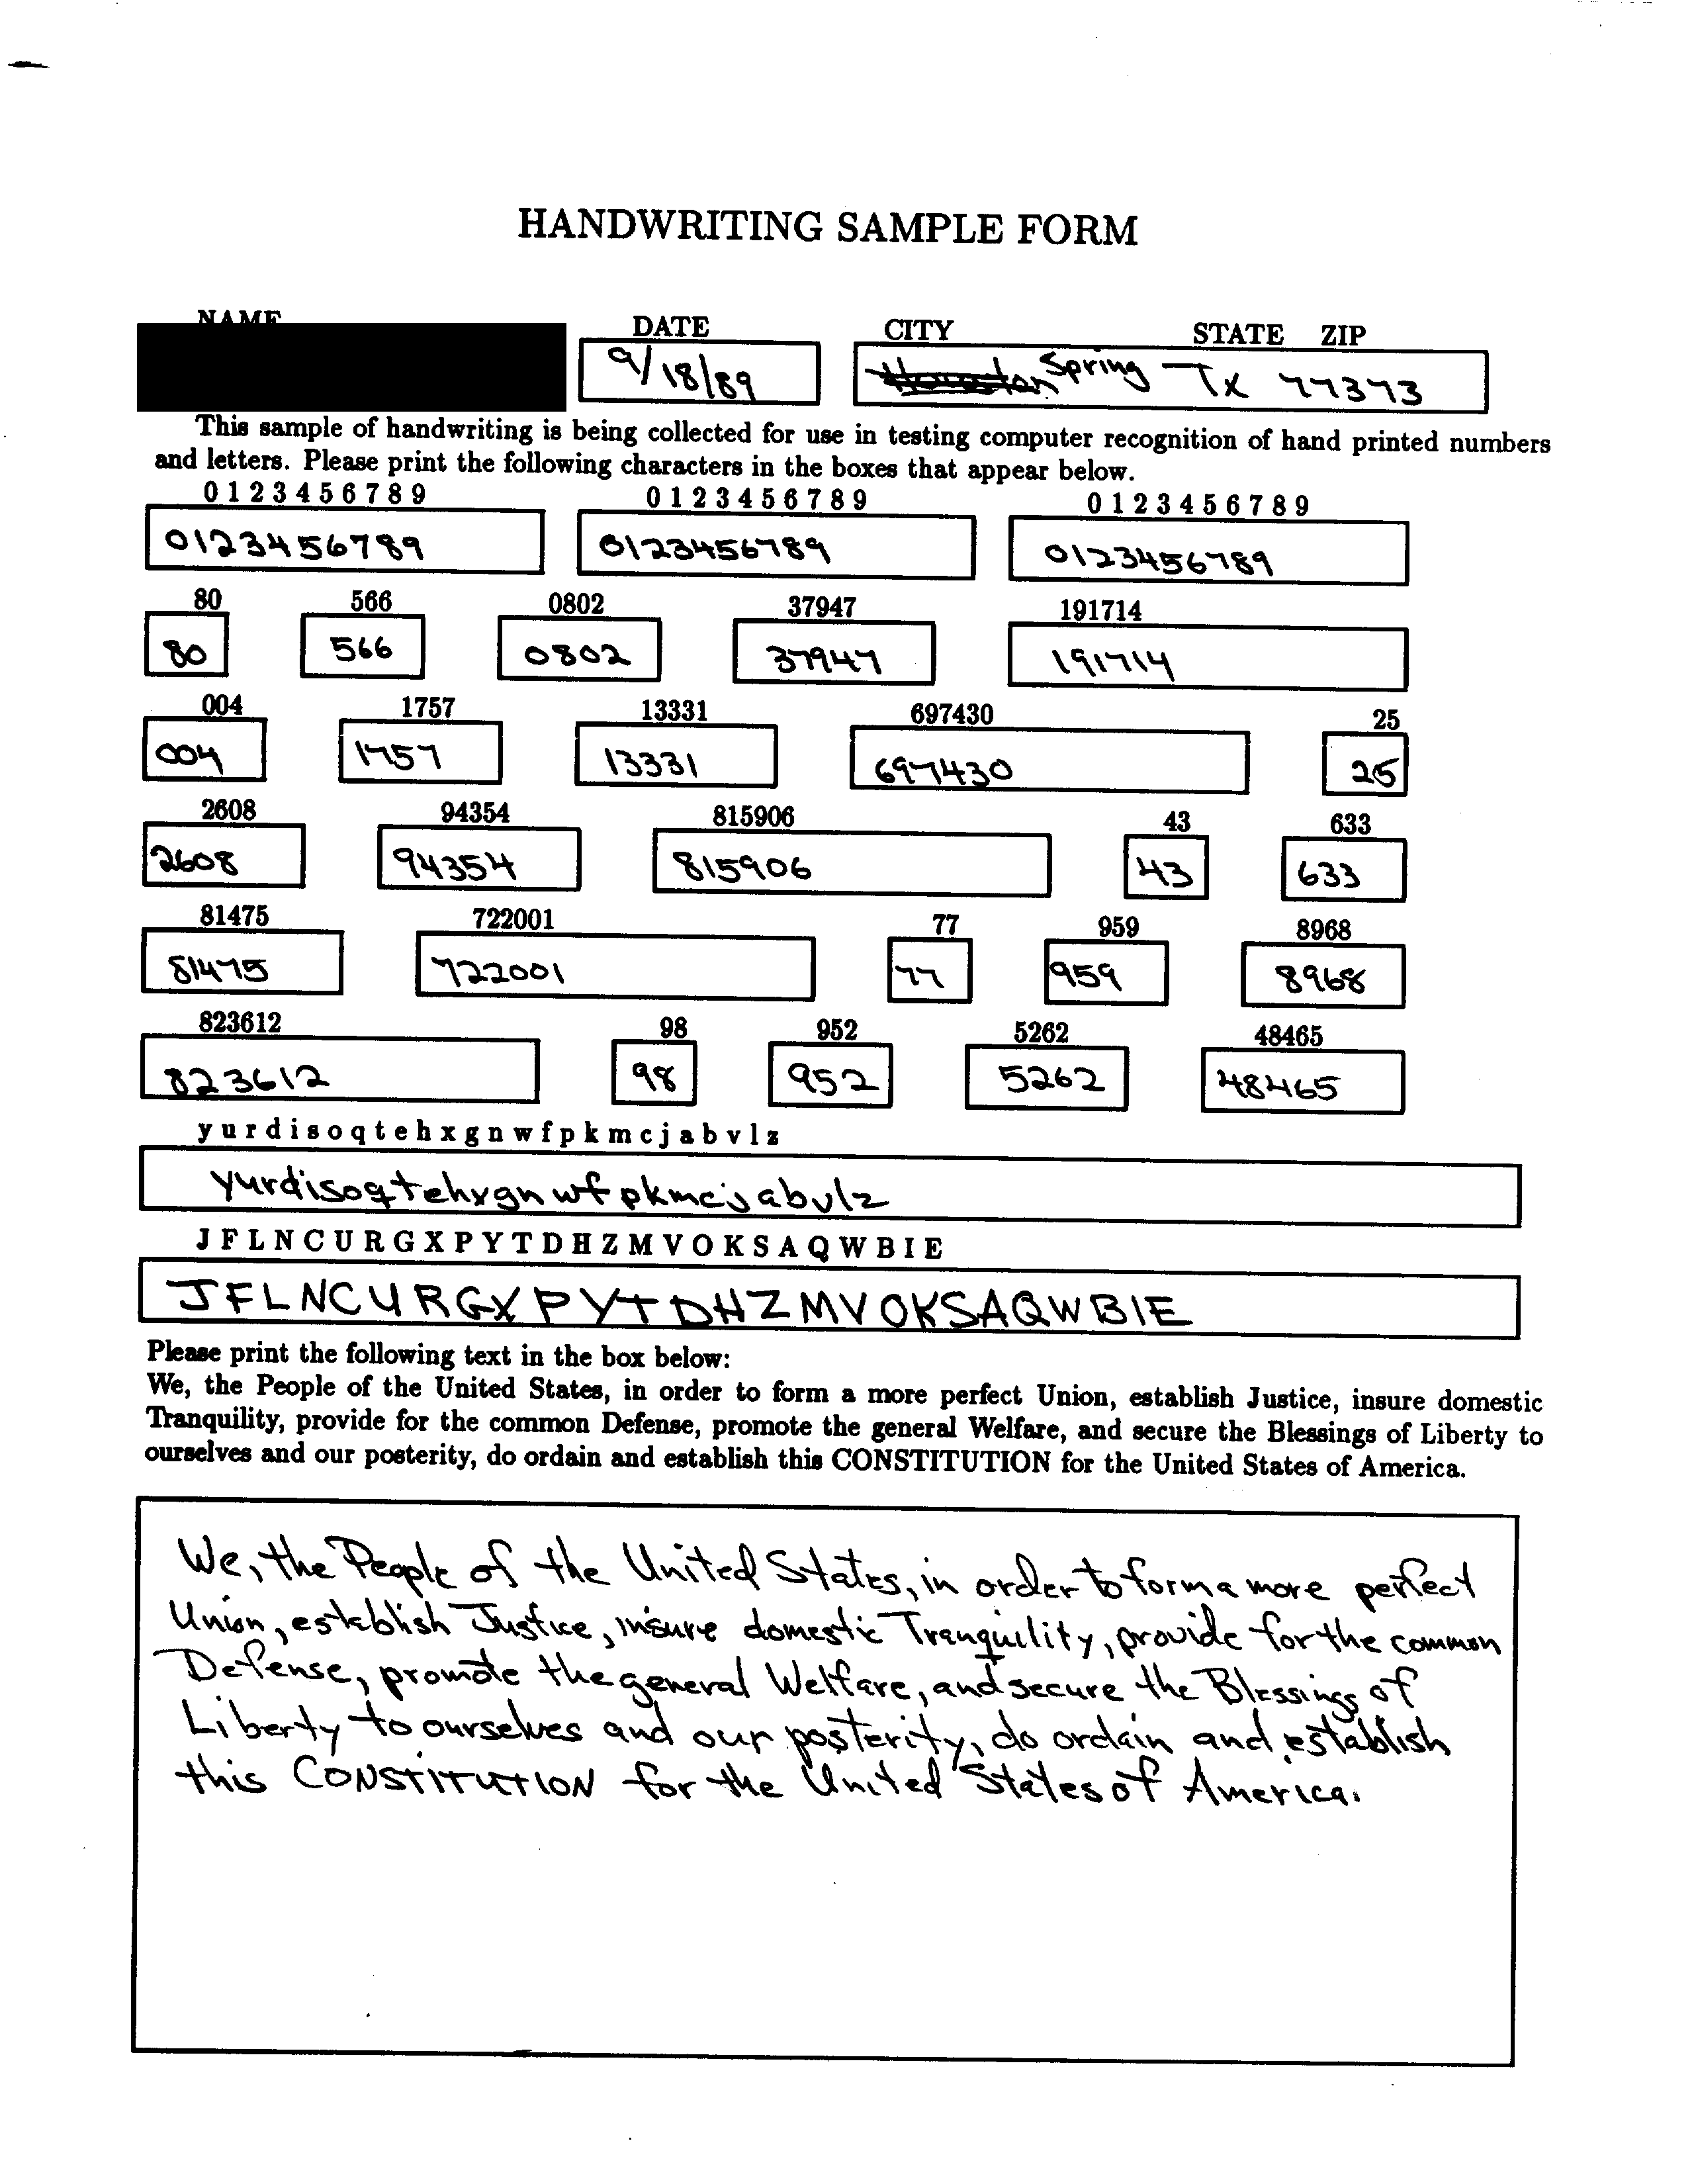 HANDWRITING SAMPLE FORM
NAME DATE CITY STATE ZIP
9/18/89 Houston Spring Tx 77373
This sample of handwriting is being collected for use in testing computer recognition of hand printed numbers
and letters. Please print the following characters in the boxes that appear below.
0 1 2 3 4 5 6 7 8 9 0 1 2 3 4 5 6 7 8 9 0 1 2 3 4 5 6 7 8 9
0123456789 0123456789 0123456789
80 566 0802 37947 191714
80 566 0802 37947 191714
004 1757 13331 697430 25
004 1757 13331 697430 25
2608 94354 815906 43 633
2608 94354 815906 43 633
81475 722001 77 959 8968
81475 722001 77 959 8968
823612 98 952 5262 48465
823612 98 952 5262 48465
y u r d i s o q t e h x g n w f p k m c j a b v l z
yurdisoqtehxgnwfpkmcjabvlz
J F L N C U R G X P Y T D H Z M V O K S A Q W B I E
JFLNCURGXPYTDHZMVOKSAQWBIE
Please print the following text in the box below:
We, the People of the United States, in order to form a more perfect Union, establish Justice, insure domestic
Tranquility, provide for the common Defense, promote the general Welfare, and secure the Blessings of Liberty to
ourselves and our posterity, do ordain and establish this CONSTITUTION for the United States of America.
We, the People of the United States, in order to form a more perfect
Union, establish Justice, insure domestic Tranquility, provide for the common
Defense, promote the general Welfare, and secure the Blessings of
Liberty to ourselves and our posterity, do ordain and establish
this CONSTITUTION for the United States of America.